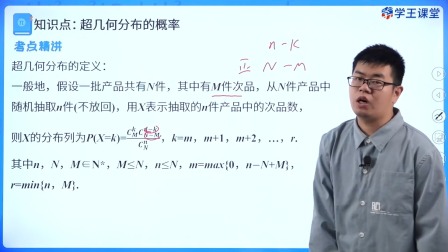 知识点：超几何分布的概率
学王课堂
考点精讲
n-k
正 N-M
超几何分布的定义：
一般地，假设一批产品共有N件，其中有M件次品，从N件产品中
随机抽取n件(不放回)，用X表示抽取的n件产品中的次品数，
则X的分布列为P(X=k)=，k=m，m+1，m+2，…，r.
其中n，N，M∈N*，M≤N，n≤N，m=max{0，n-N+M}，
r=min{n，M}.